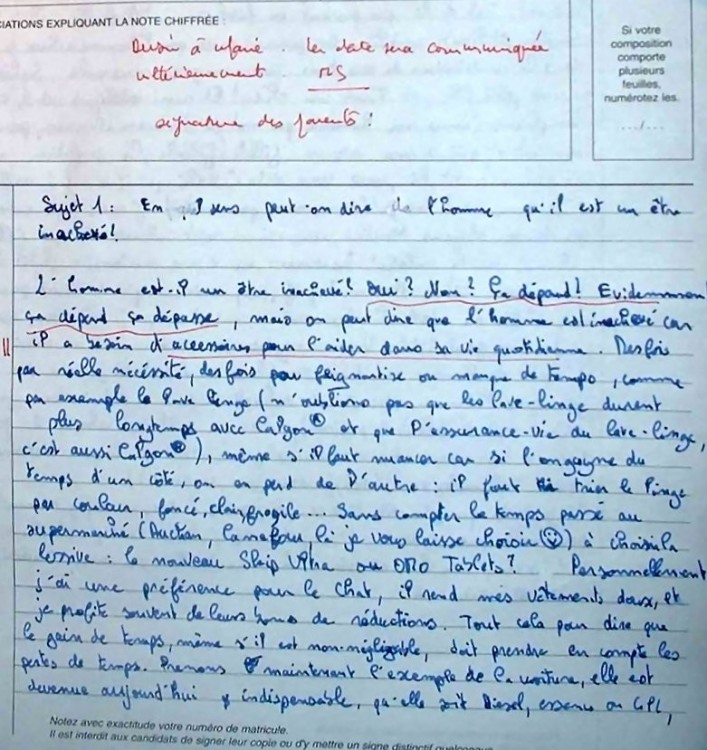 CIATIONS EXPLIQUANT LA NOTE CHIFFRÉE :
Devoir à refaire. La date sera communiquée
ultérieurement. RS
signature des parents !
Si votre
composition
comporte
plusieurs
feuilles,
numérotez les.
.../...
Sujet 1 : En quel sens peut-on dire de l'homme qu'il est un être
inachevé !
L'homme est-il un être inachevé ? Oui ? Non ? Ça dépend ! Evidemment
ça dépend ça dépasse, mais on peut dire que l'homme est inachevé car
il a besoin d'accessoires pour l'aider dans sa vie quotidienne. Des fois
par réelle nécessité, des fois pour feignantise ou manque de temps, comme
par exemple le lave linge (n'oublions pas que les lave-linge durent
plus longtemps avec Calgon® et que l'assurance-vie du lave-linge,
c'est aussi Calgon®), même s'il faut nuancer car si l'on gagne du
temps d'un côté, on en perd de l'autre : il faut trier le linge
par couleur, foncé, clair, fragile... Sans compter le temps passé au
supermarché (Auchan, Carrefour, là je vous laisse choisir ☺) à choisir la
lessive : le nouveau Skip Ultra ou OMO Tablets ? Personnellement
j'ai une préférence pour le Chat, il rend mes vêtements doux, et
je profite souvent de leurs bons de réductions. Tout cela pour dire que
le gain de temps, même s'il est non-négligeable, doit prendre en compte les
pertes de temps. Prenons maintenant l'exemple de la voiture, elle est
devenue aujourd'hui indispensable, qu'elle soit Diesel, essence ou GPL,
Notez avec exactitude votre numéro de matricule.
Il est interdit aux candidats de signer leur copie ou d'y mettre un signe distinctif quelconque